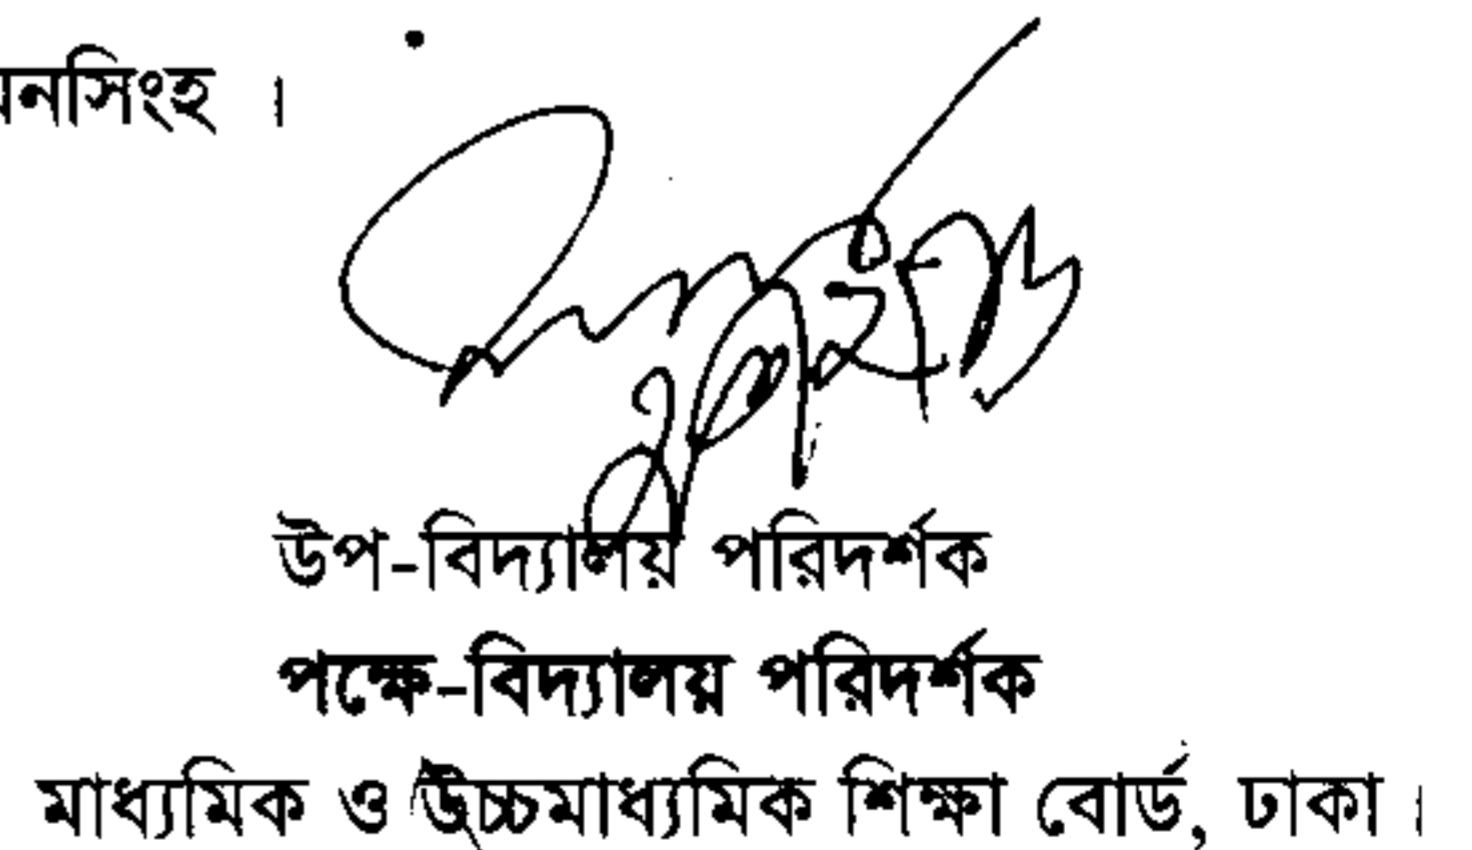 মনসিংহ ।
উপ-বিদ্যালয় পরিদর্শক
পক্ষে-বিদ্যালয় পরিদর্শক
মাধ্যমিক ও উচ্চমাধ্যমিক শিক্ষা বোর্ড, ঢাকা ।